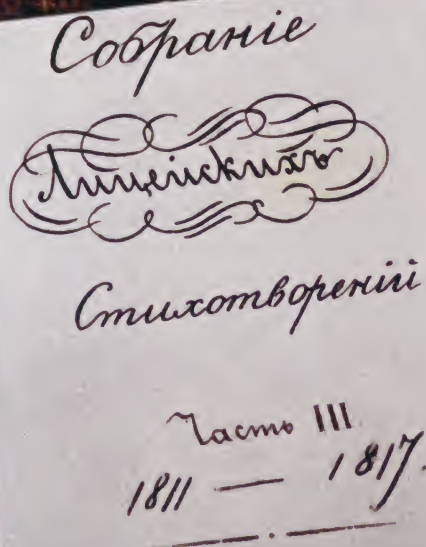 Собранiе
Лицейскихъ
Стихотворенiй
Часть III
1811 — 1817.